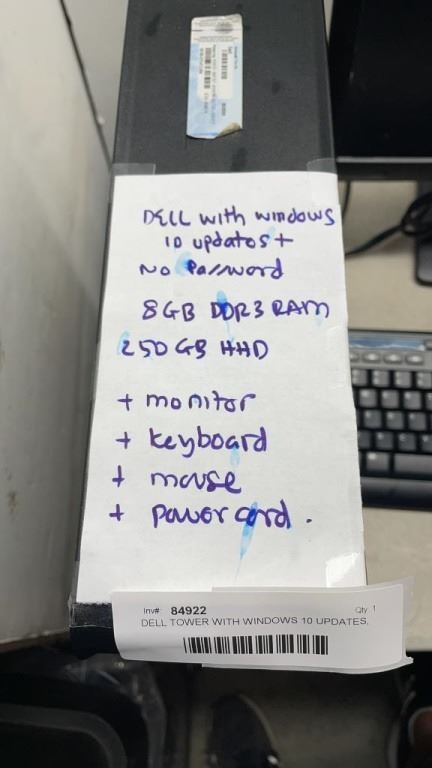 DELL with windows
10 updates +
No Password
8GB DDR3 RAM
250 GB HHD
+ monitor
+ keyboard
+ mouse
+ power cord .
Inv# 84922
Qty 1
DELL TOWER WITH WINDOWS 10 UPDATES,